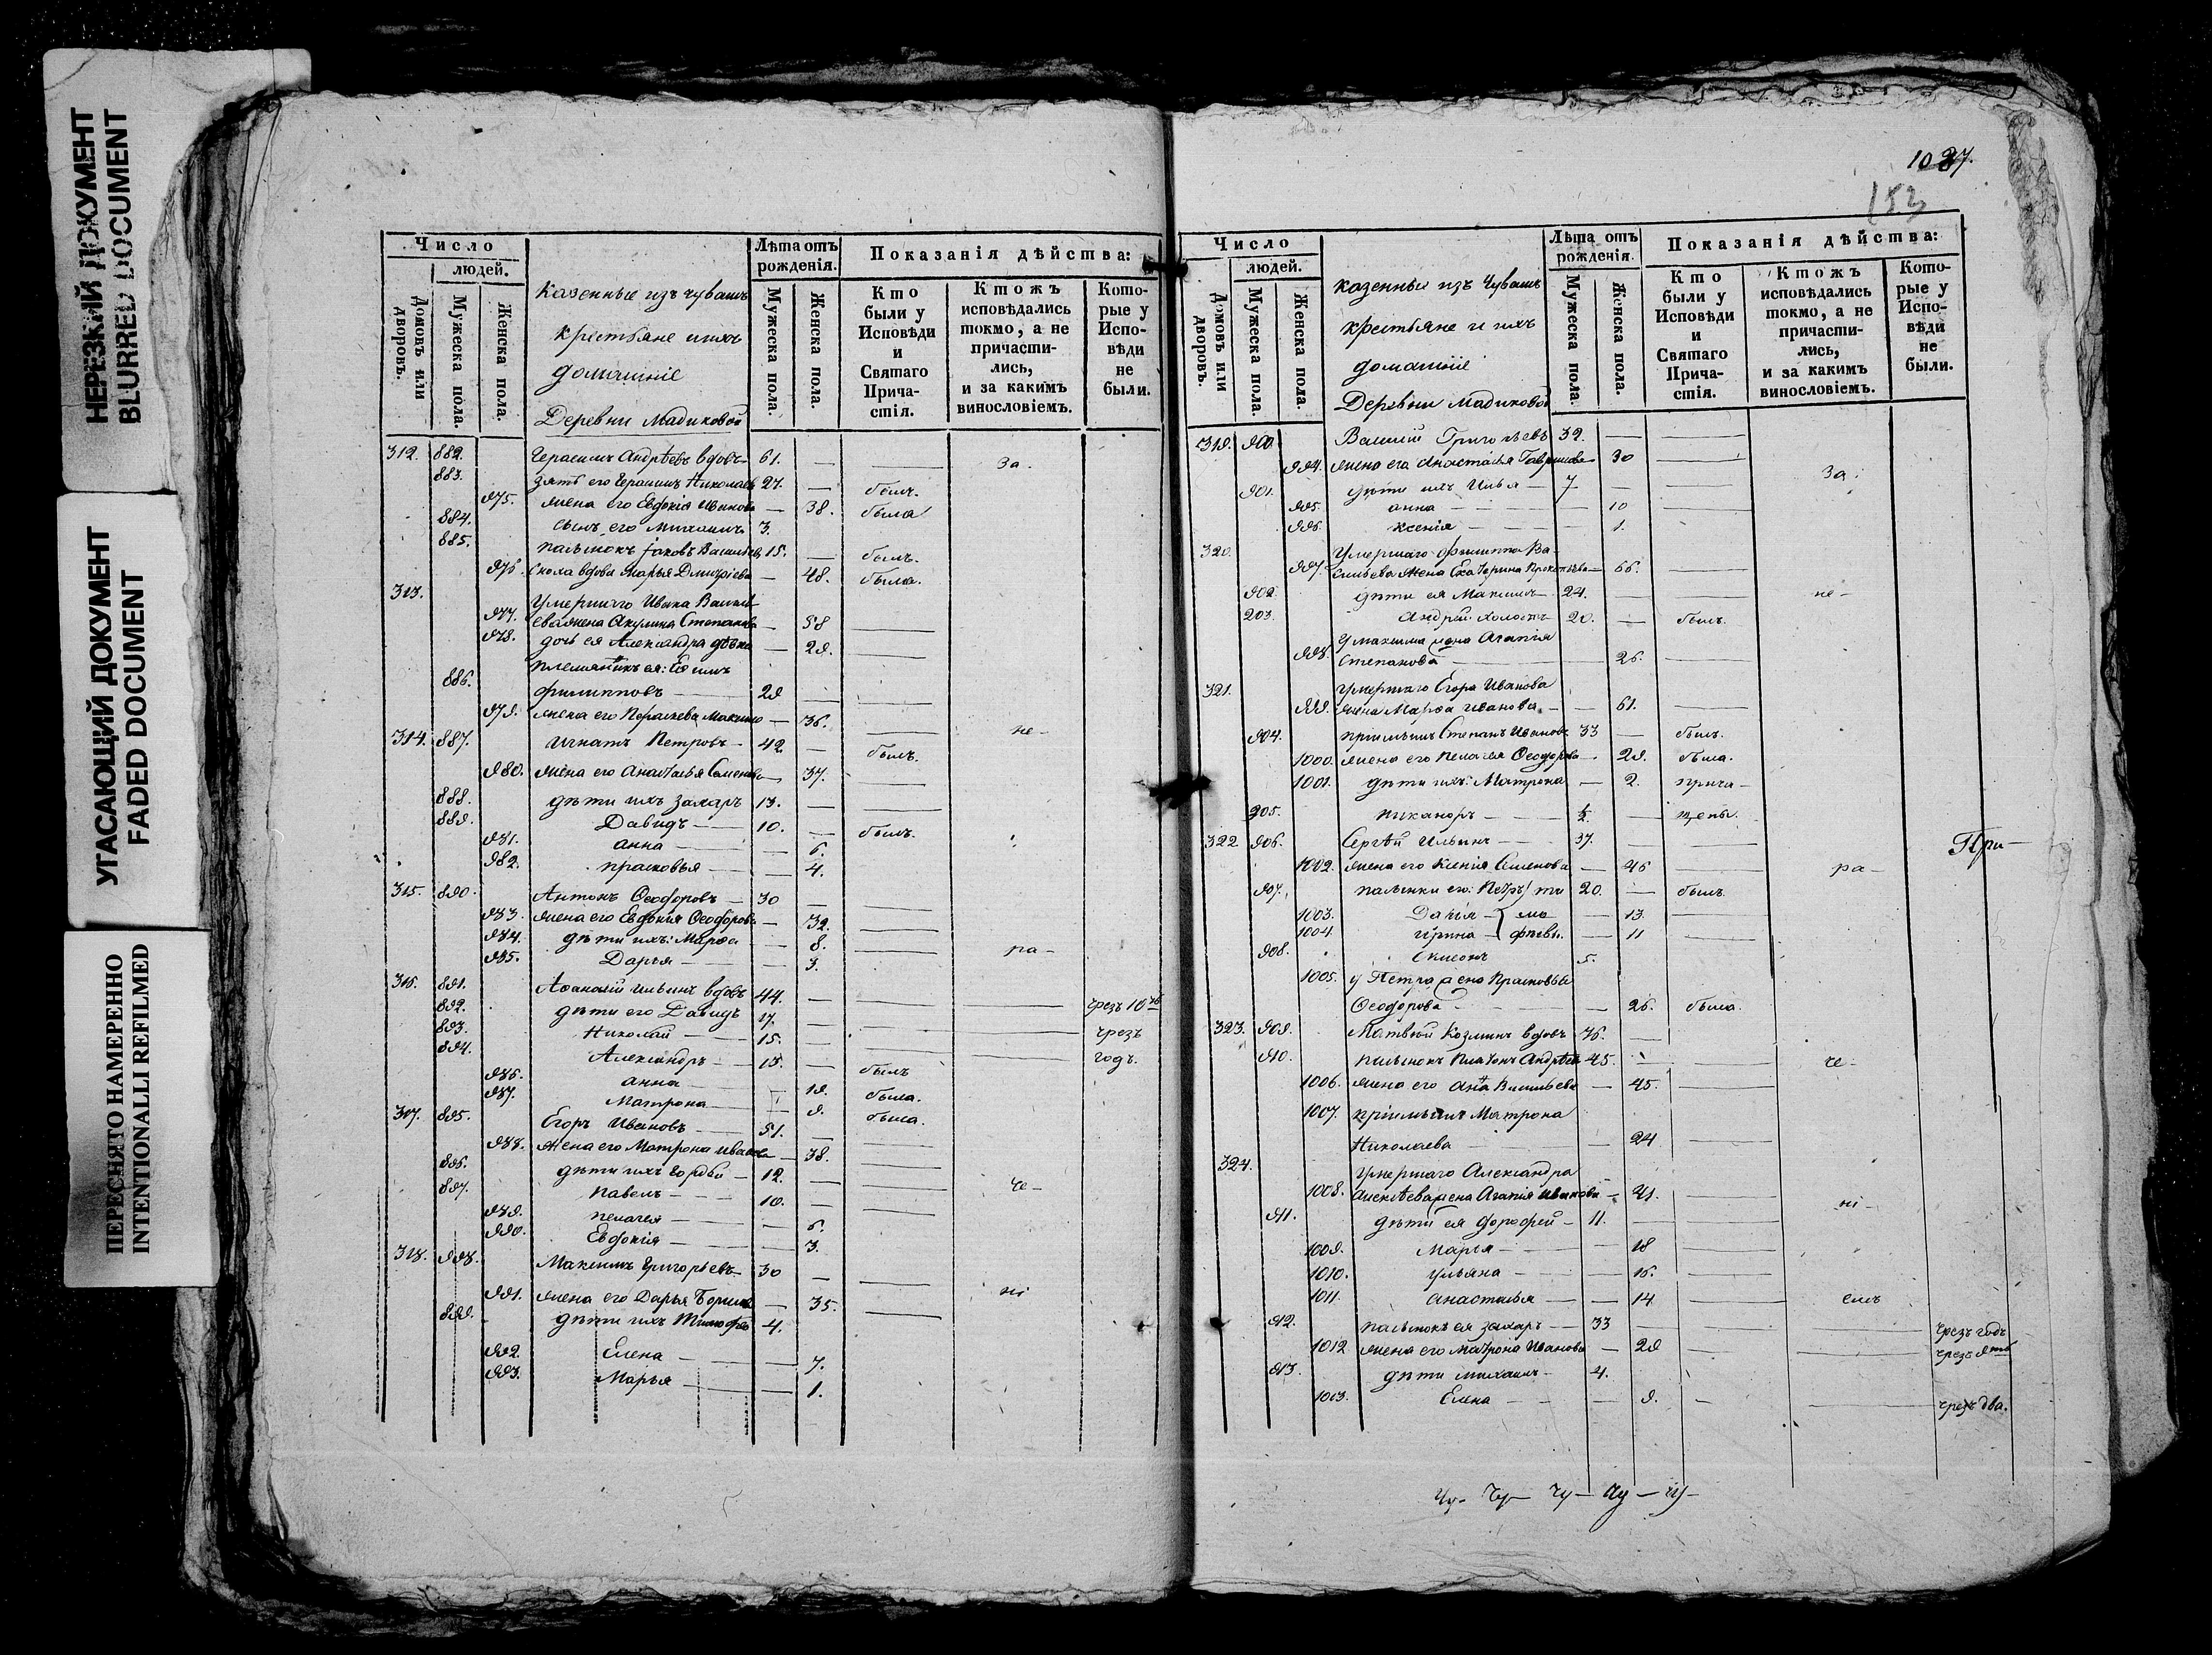 НЕРЕЗКИЙ ДОКУМЕНТ
BLURRED DOCUMENT
УГАСАЮЩИЙ ДОКУМЕНТ
FADED DOCUMENT
ПЕРЕСНЯТО НАМЕРЕННО
INTENTIONALLI REFILMED
Число
людей.
Домовъ или дворовъ.
Мужеска пола.
Женска пола.
Казенные изъ чувашъ
крестьяне и ихъ
домашніе
Деревни Мадиковой
Лѣта отъ рожденія.
Мужеска пола.
Женска пола.
Показанія дѣйства:
Кто были у Исповѣди и Святаго Причастія.
Ктожъ исповѣдались токмо, а не причастились, и за какимъ винословіемъ.
Которые у Исповѣди не были.
312. 882. Герасимъ Андрѣевъ вдовъ 61. — — За-
883. зять его Герасимъ Николаевъ 27. — былъ.
975. жена его Евдокія Иванова — 38. была
884. сынъ его Михаилъ 3.
885. пасынокъ Іаковъ Васильевъ 15. — былъ.
976. вдова Марья Дмитріева — 48. была.
313. Умершаго Ивана Василь-
977. ева жена Акулина Степанова — 58 —
978. дочь ея Александра дѣвка — 29. —
племянникъ ея: Ефимъ
886. Филипповъ — 29 — —
979. жена его Параскева Максимо — 36. — не-
314. 887. Игнатъ Петровъ — 42 — былъ.
980. жена его Анастасья Семенова — 37. —
888. дѣти ихъ Захаръ 13. — —
889. Давидъ — 10. — былъ.
981. Анна — — 6.
982. Прасковья — — 4.
315. 890. Антонъ Ѳеодоровъ — 30 — —
983. жена его Евдокія Ѳеодорова — 32. —
984. дѣти ихъ: Марѳа — 8. — ра-
985. Дарья — — 3.
316. 891. Аѳанасій Ильинъ вдовъ 44. — — — чрезъ 10ть
892. дѣти его Давидъ 17. — — — чрезъ
893. Николай — 15. — — — годъ.
894. Александръ — 13. — былъ
986. Анна — — 19. была.
987. Матрона — — 9. была.
317. 895. Егоръ Ивановъ — 51. — —
988. Жена его Матрона Иванова — 38. —
896. дѣти ихъ Гордѣй — 12. — — че-
897. Павелъ — 10. — —
989. Пелагея — — 6.
990. Евдокія — — 3.
318. 898. Максимъ Григорьевъ — 30 — — ні
991. жена его Дарья Борисова — 35. —
899. дѣти ихъ Тимофей 4.
992. Елена — — 7.
993. Марья — — 1.
1037.
153
Число
людей.
Домовъ или дворовъ.
Мужеска пола.
Женска пола.
казенные изъ Чувашъ
крестьяне и ихъ
домашніе
Деревни Мадиковой
Лѣта отъ рожденія.
Мужеска пола.
Женска пола.
Показанія дѣйства:
Кто были у Исповѣди и Святаго Причастія.
Ктожъ исповѣдались токмо, а не причастились, и за какимъ винословіемъ.
Которые у Исповѣди не были.
319. 900. Василій Григорьевъ 32. — —
994. жена его Анастасья Гаврилова 30 — За-
901. дѣти ихъ Илья — 7 — —
995. Анна — — 10
996. Ксенія — — 1.
320. Умершаго Филиппа Ва-
997. сильева жена Екатерина Прокопьева — 66. —
902. дѣти ея Максимъ — 24. — — не-
903. Андрей холостъ 20. — былъ.
У Максима жена Агапія
998. Степанова — 26. —
321. Умершаго Егора Иванова
999. жена Марѳа Иванова. — — 61. —
904. пріемышъ Степанъ Ивановъ 33 — былъ.
1000. жена его Пелагея Ѳеодорова — 29. была.
1001. дѣти ихъ: Матрона — 2. прича-
905. Никаноръ — ½. — щены.
322 906. Сергѣй Ильинъ — 37. — — При-
1002. жена его Ксенія Семенова — 46 — ра-
907. пасынки его: Петръ 20. — былъ.
1003. Дарія — 13. —
1004. Ирина — 11 —
908. 5.
1005. у Петра жена Прасковья
Ѳеодорова — — 26. была.
323. 909. Матвѣй Козминъ вдовъ 76. — —
910. пасынокъ Платонъ Андрѣевъ 45. — — че-
1006. жена его Анна Васильева — 45. —
1007. пріемышъ Матрона
Николаева — — 24 —
324. Умершаго Александра
1008. Алексѣева жена Агапія Иванова — 41. — ні-
911. дѣти ея Дорофей — 11. — —
1009. Марья — — 18 —
1010. Ульяна — — 16. —
1011. Анастасья — — 14 — емъ
912. пасынокъ ея Захаръ — 33 — — — чрезъ годъ
1012 жена его Матрона Иванова — 29 — — чрезъ 9ть
913. дѣти Михаилъ — 4.
1013. Елена — — 9. — — чрезъ два.
Чу- Чу- Чу- Чу- Чу-